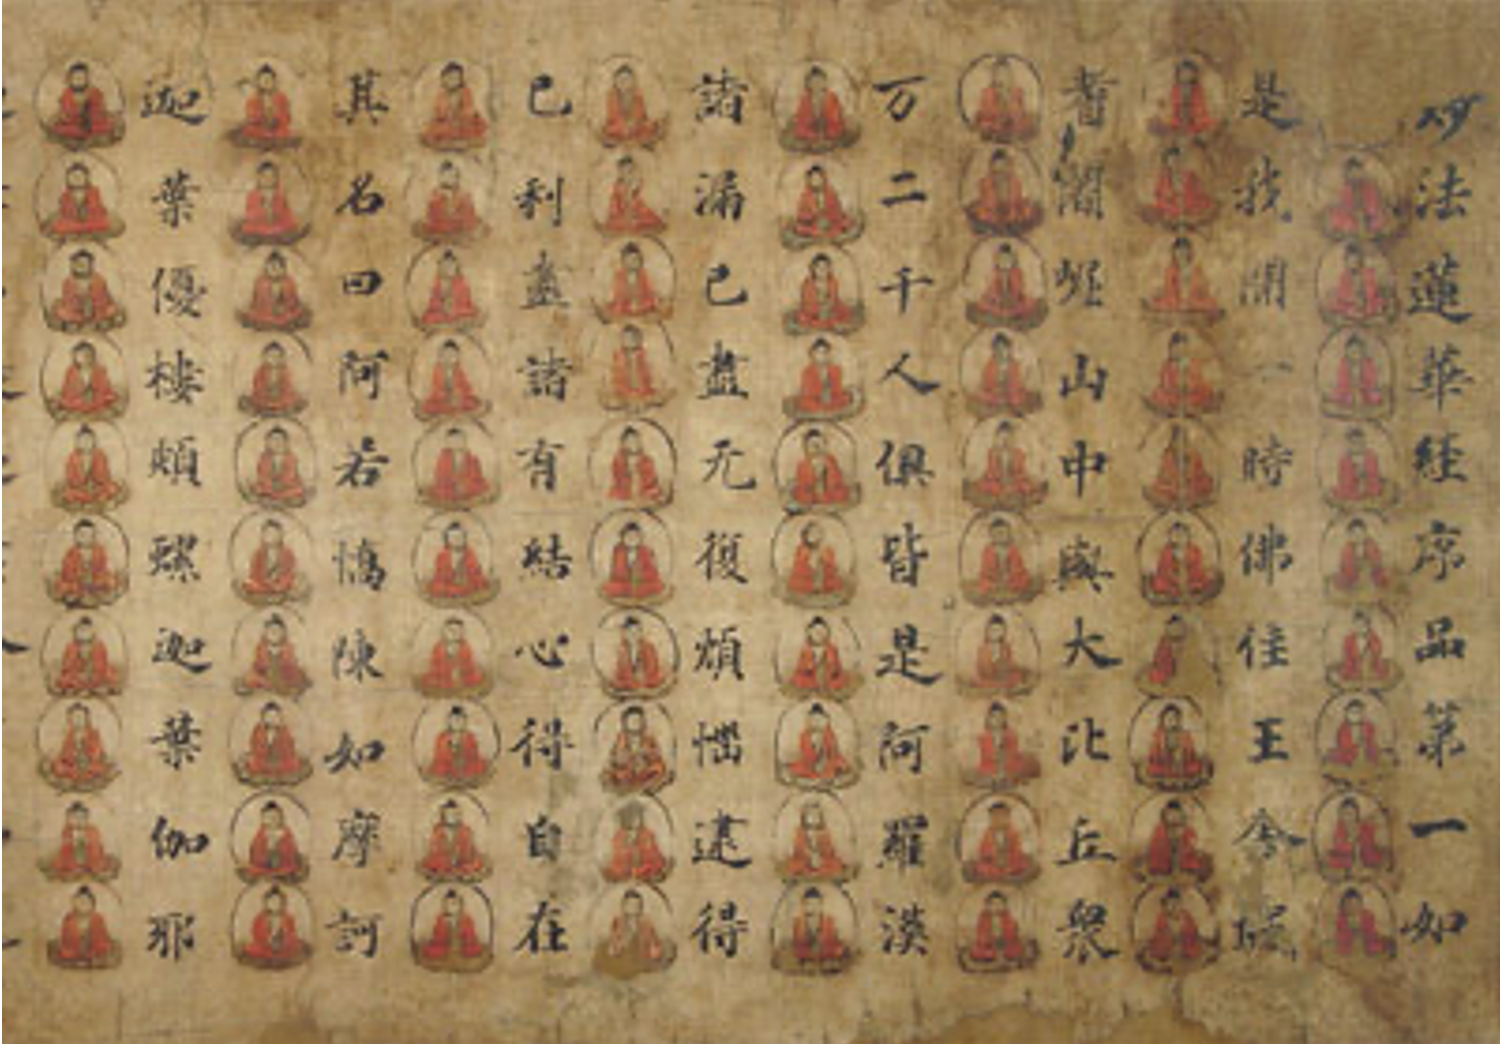 妙法蓮華経序品苐一如
是我聞一時佛住王舍城
耆闍崛山中與大比丘衆
万二千人俱皆是阿羅漢
諸漏已盡无復煩惱逮得
己利盡諸有結心得自在
其名曰阿若憍陳如摩訶
迦葉優樓頻螺迦葉伽耶